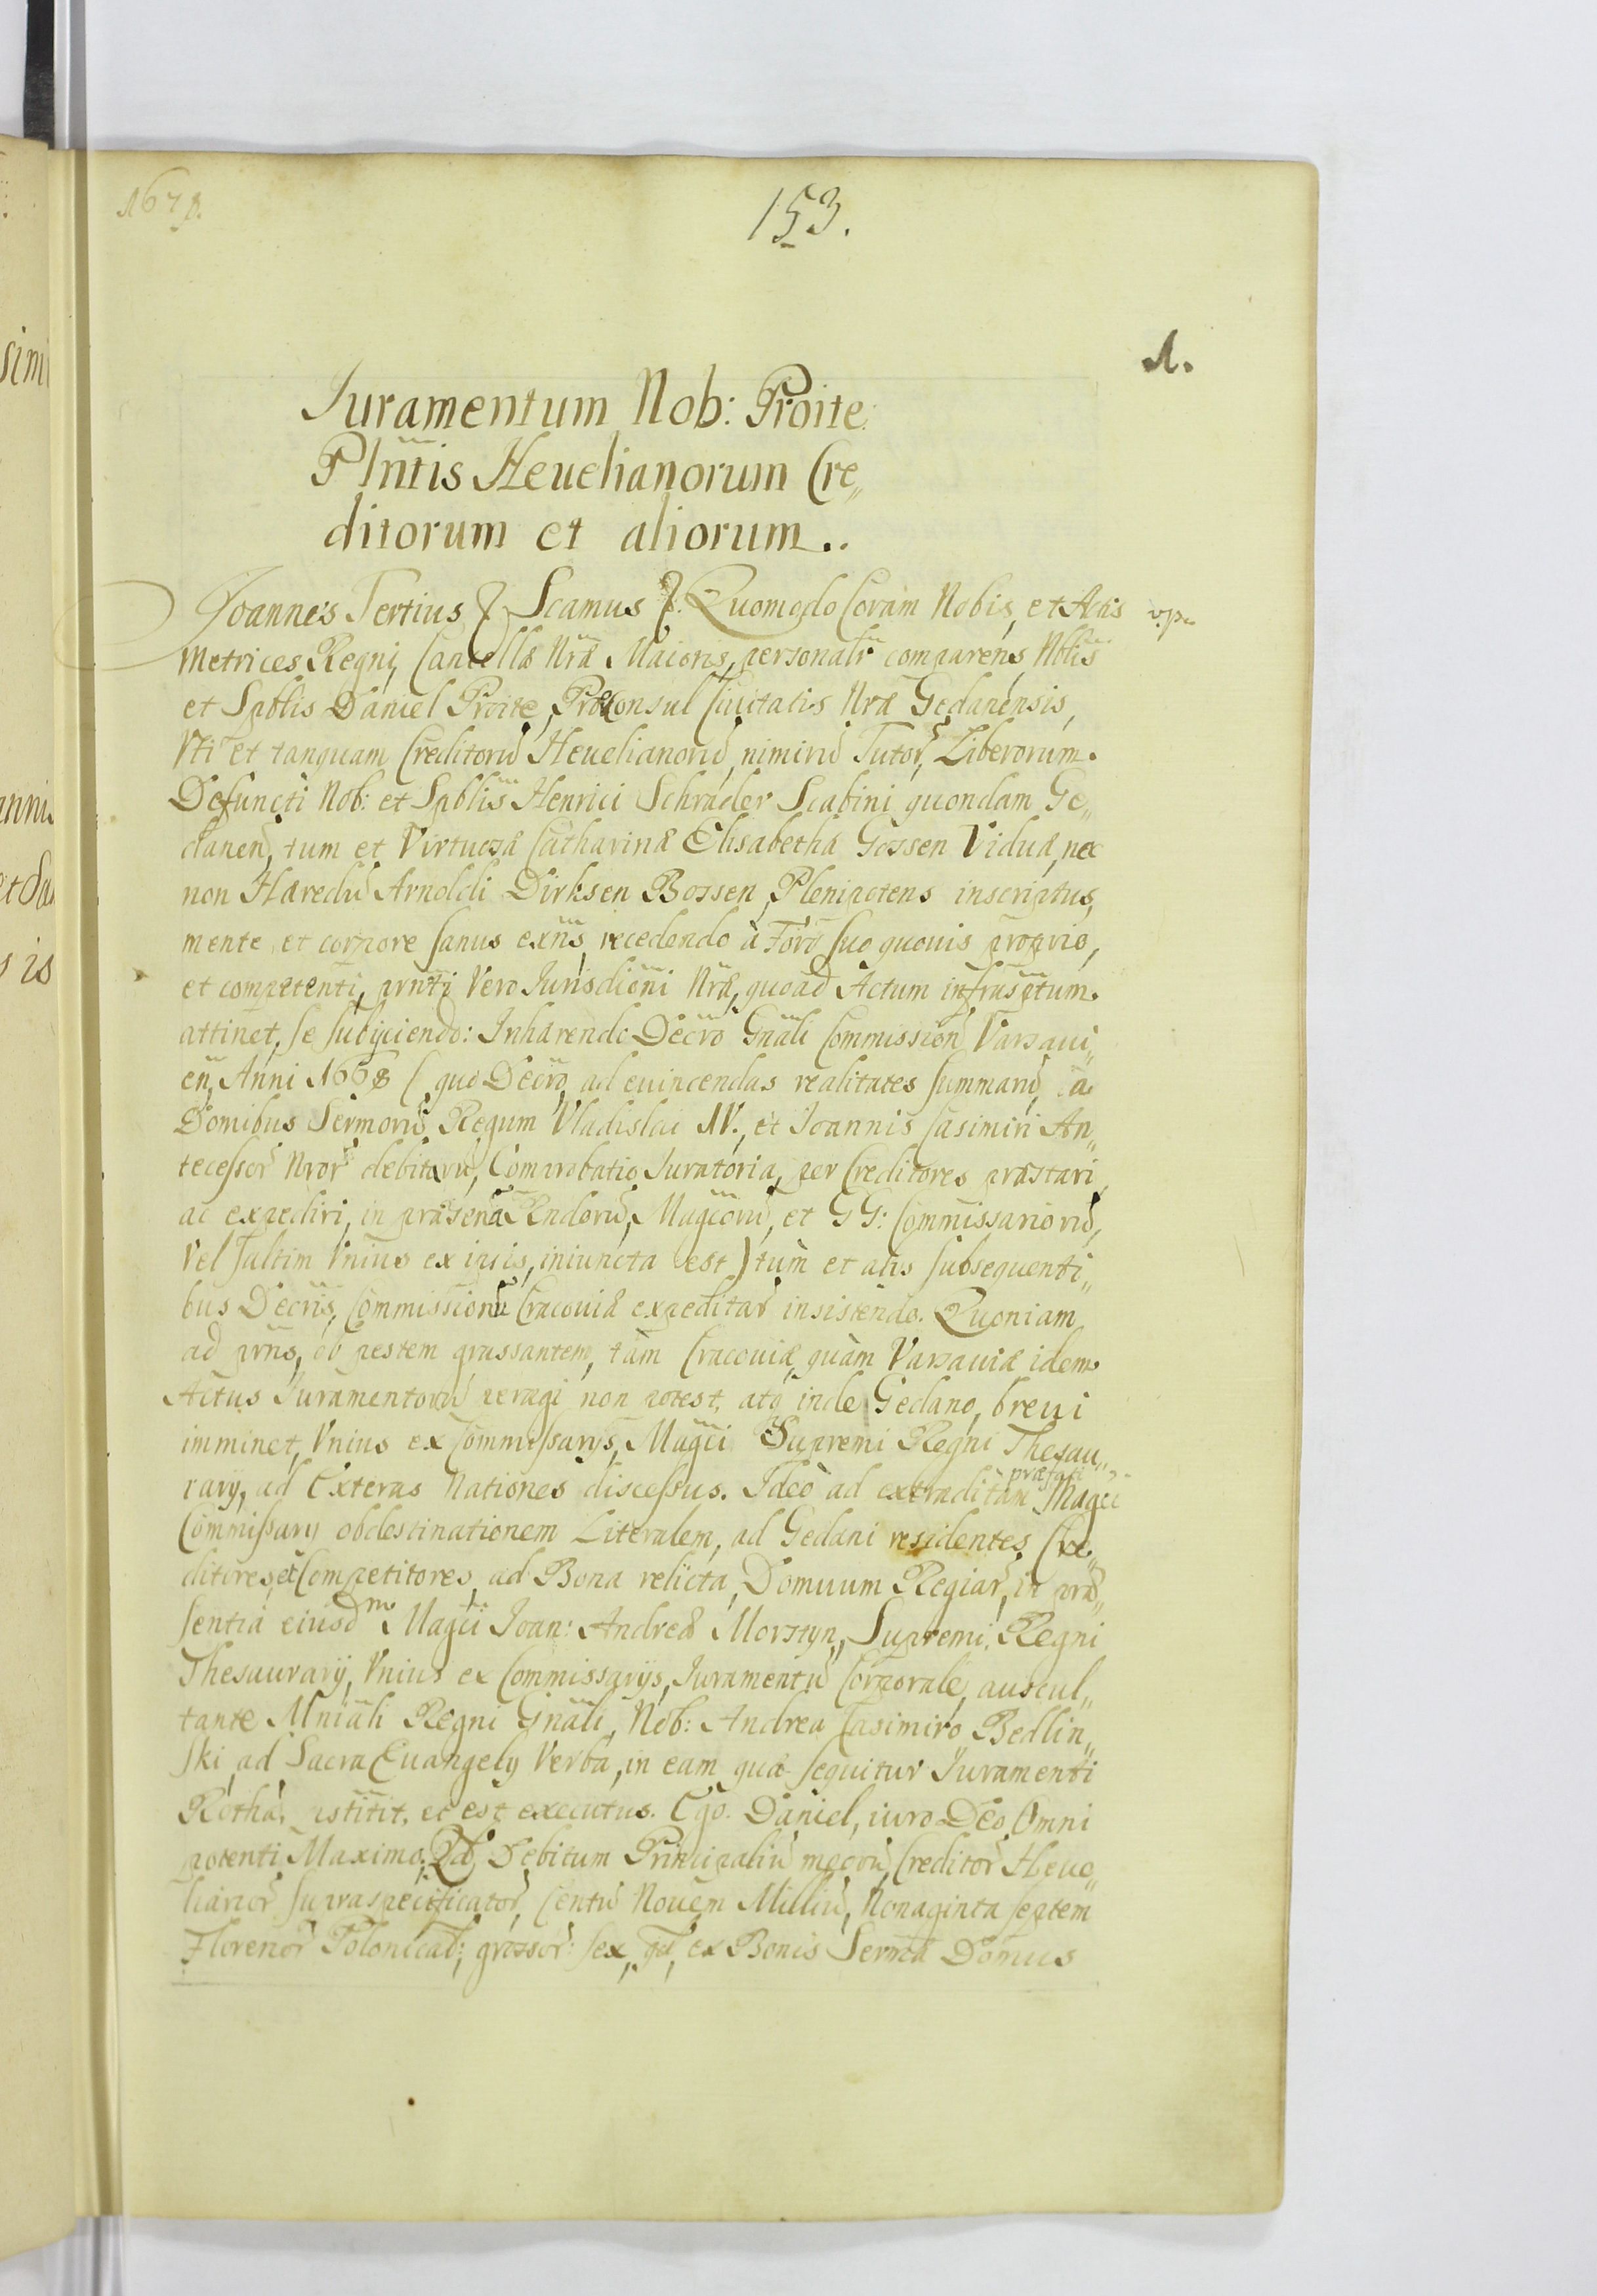 1678.
153.
1.
Juramentum Nob: Proite
Plntis Heuelianorum Cre„
ditorum et aliorum..
Joannes Tertius & Scamus &. Quomodo Coram Nobis, et Actis
Metrices Regni, Cancellæ Nræ Maioris, personalr comparens Nblis
et Spblis Daniel Proite, Proconsul Ciuitatis Nræ Gedanensis,
Vti et tanquam Creditorũ Heuelianorũ, nimirũ Tutor, Liberorum
Defuncti Nob: et Spblis Henrici Schrader Scabini quondam Ge„
danen, tum et Virtuosæ Catharinæ Elisabethæ Gossen Viduæ, nec
non Hæredũ Arnoldi Dirksen Bossen, Plenipotens inscriptus,
mente et corpore sanus exns, recedendo à Foro suo quouis proprio,
et competenti, prnti Vero Jurisdioni Nræ, quoad Actum infrasptum
attinet, se subijciendo: Inhærendo Decro Gnali Commission Varsaui„
en, Anni 1668 (quo Decro, ad euincendas realitates summarũ, a
Domibus Sermorũ Regum Vladislai IV., et Joannis Casimiri An„
tecessor Nror debitarũ, Comprobatio Juratoria, per Creditores præstari,
ac expediri, in præsena Rndorũ, Magcorũ, et GG: Commissariorũ,
Vel saltim Vnius ex ipsis, iniuncta est) tùm et alis subsequenti„
bus Decris, Commissionũ Cracouiæ expeditar insistendo. Quoniam
ad prns, ob pestem grassantem, tàm Cracouiæ, quàm Varsauiæ idem
Actus Juramentorũ peragi non potest, atq inde Gedano, breui
imminet, Vnius ex Commissarys, Magci Supremi Regni Thesau„
rary, ad Exteras Nationes discessus. Ideò ad extraditam præfati Magci
Commissary obdestinationem Literalem, ad Gedani residentes Cre„
ditores, et Competitores, ad Bona relicta, Domuum Regiar, in præ„
sentia eiusdm Magci Joan: Andreæ Morstyn, Supremi Regni
Thesaurarij, Vnius ex Commissarijs, Juramentũ Corporale, auscul„
tante Mniali Regni Gnali, Nob: Andrea Casimiro Bedlin„
ski, ad Sacra Euangely Verba, in eam quæ sequitur Juramenti
Rothã, pstitit, et est executus. Ego Daniel, iuro Deo Omni
potenti Maximo, Qd Debitum Principaliũ meorũ, Creditor Heue„
lianor supraspecificator, Centũ Nouem Milliũ, Nonaginta septem
Florenor Polonical; grossor sex, qd, ex Bonis Sermæ Domus